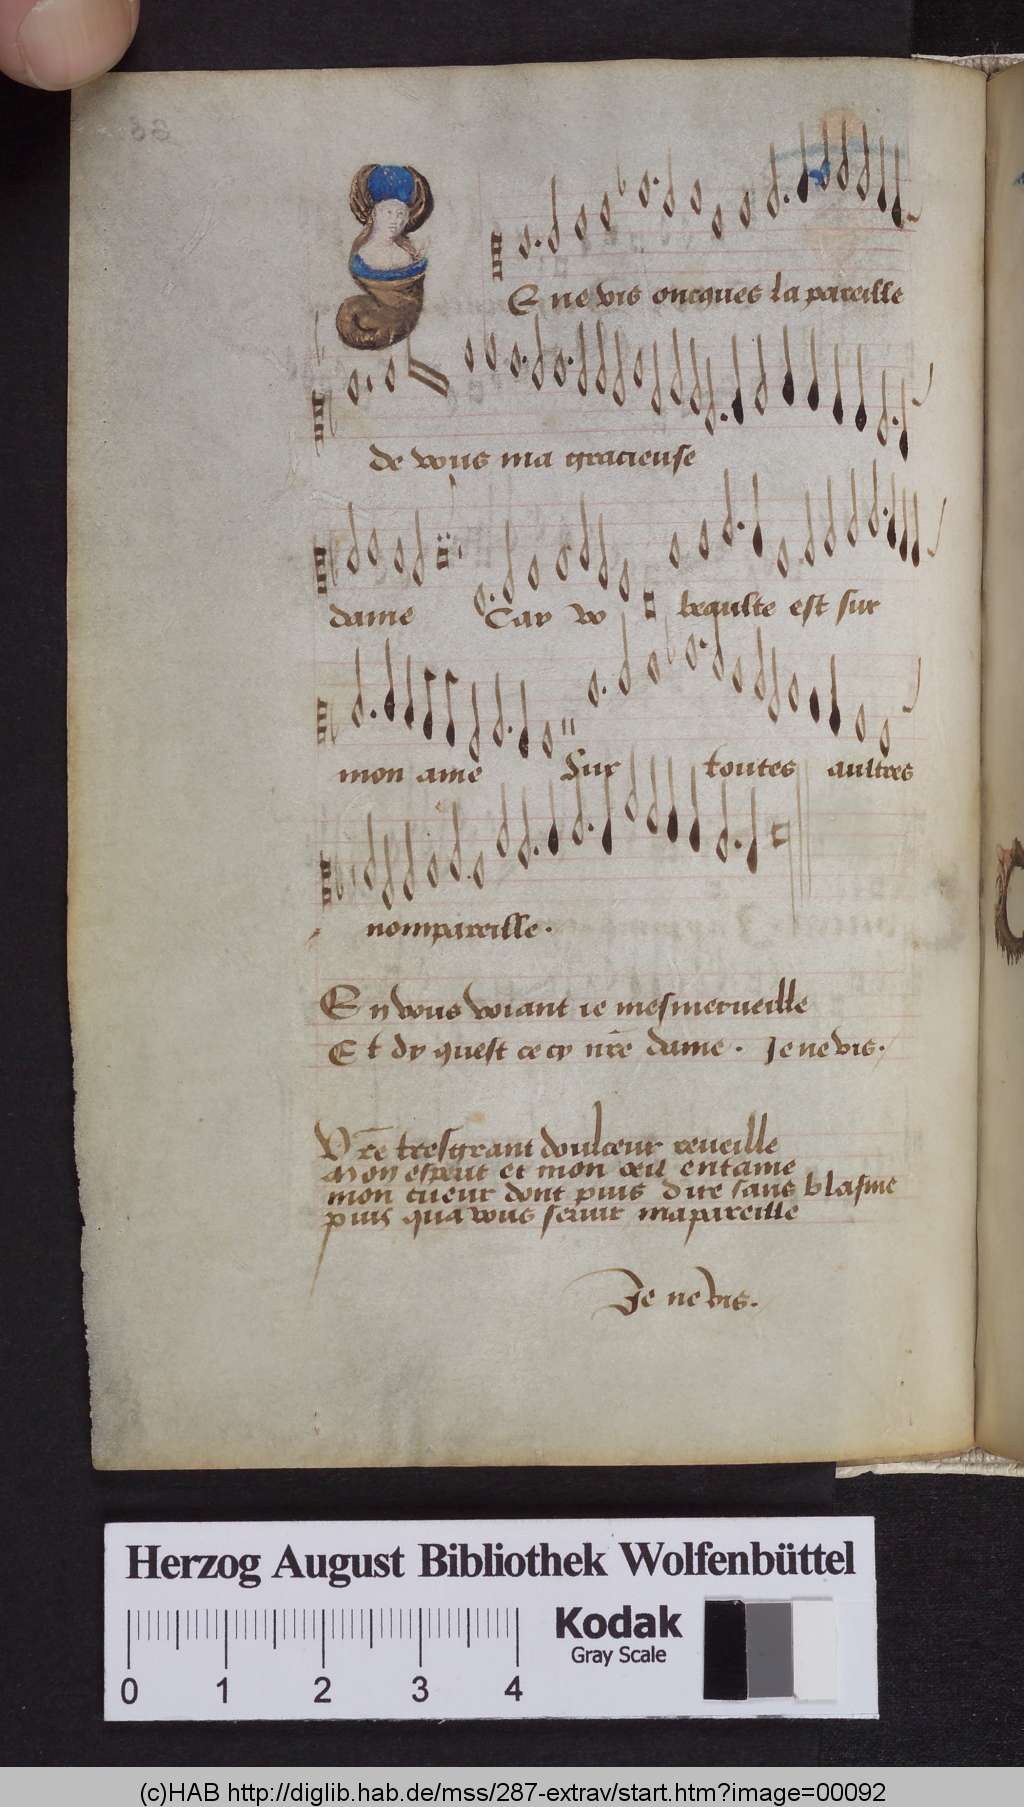 E ne vis oncques la pareille
de vous ma gracieuse
dame Car vo beaulte est sur
mon ame Sur toutes aultres
nompareille.
En vous voiant ie mesmerueille
Et dy quest cecy nr̃e dame. Je ne vis.
Vr̃e tresgrant doulceur reueille
Mon esperit et mon oeil entame
mon cueur dont puis dire sans blasme
puis qua vous seruir mapareille
Je ne vis.
Herzog August Bibliothek Wolfenbüttel
Kodak
Gray Scale
0 1 2 3 4
(c)HAB http://diglib.hab.de/mss/287-extrav/start.htm?image=00092